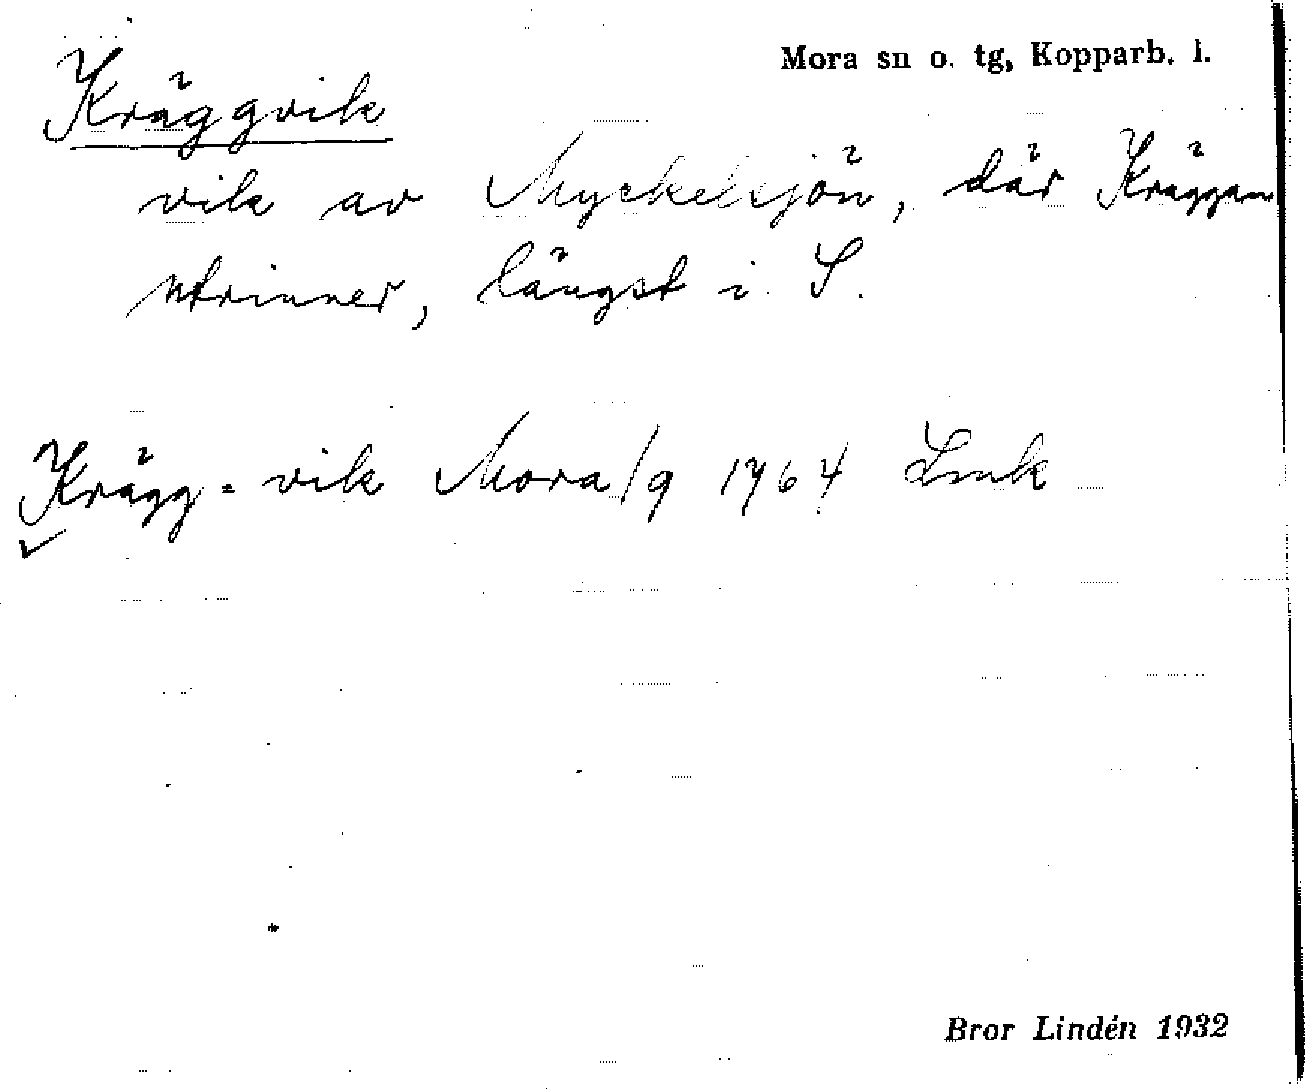 Mora sn o. tg, Kopparb. l.
Kräggvik
vik av Myckelsjön, där Kräggan
utrinner, längst i S.
Krägg-vik Mora/9 1964 Lmk
Bror Lindén 1932